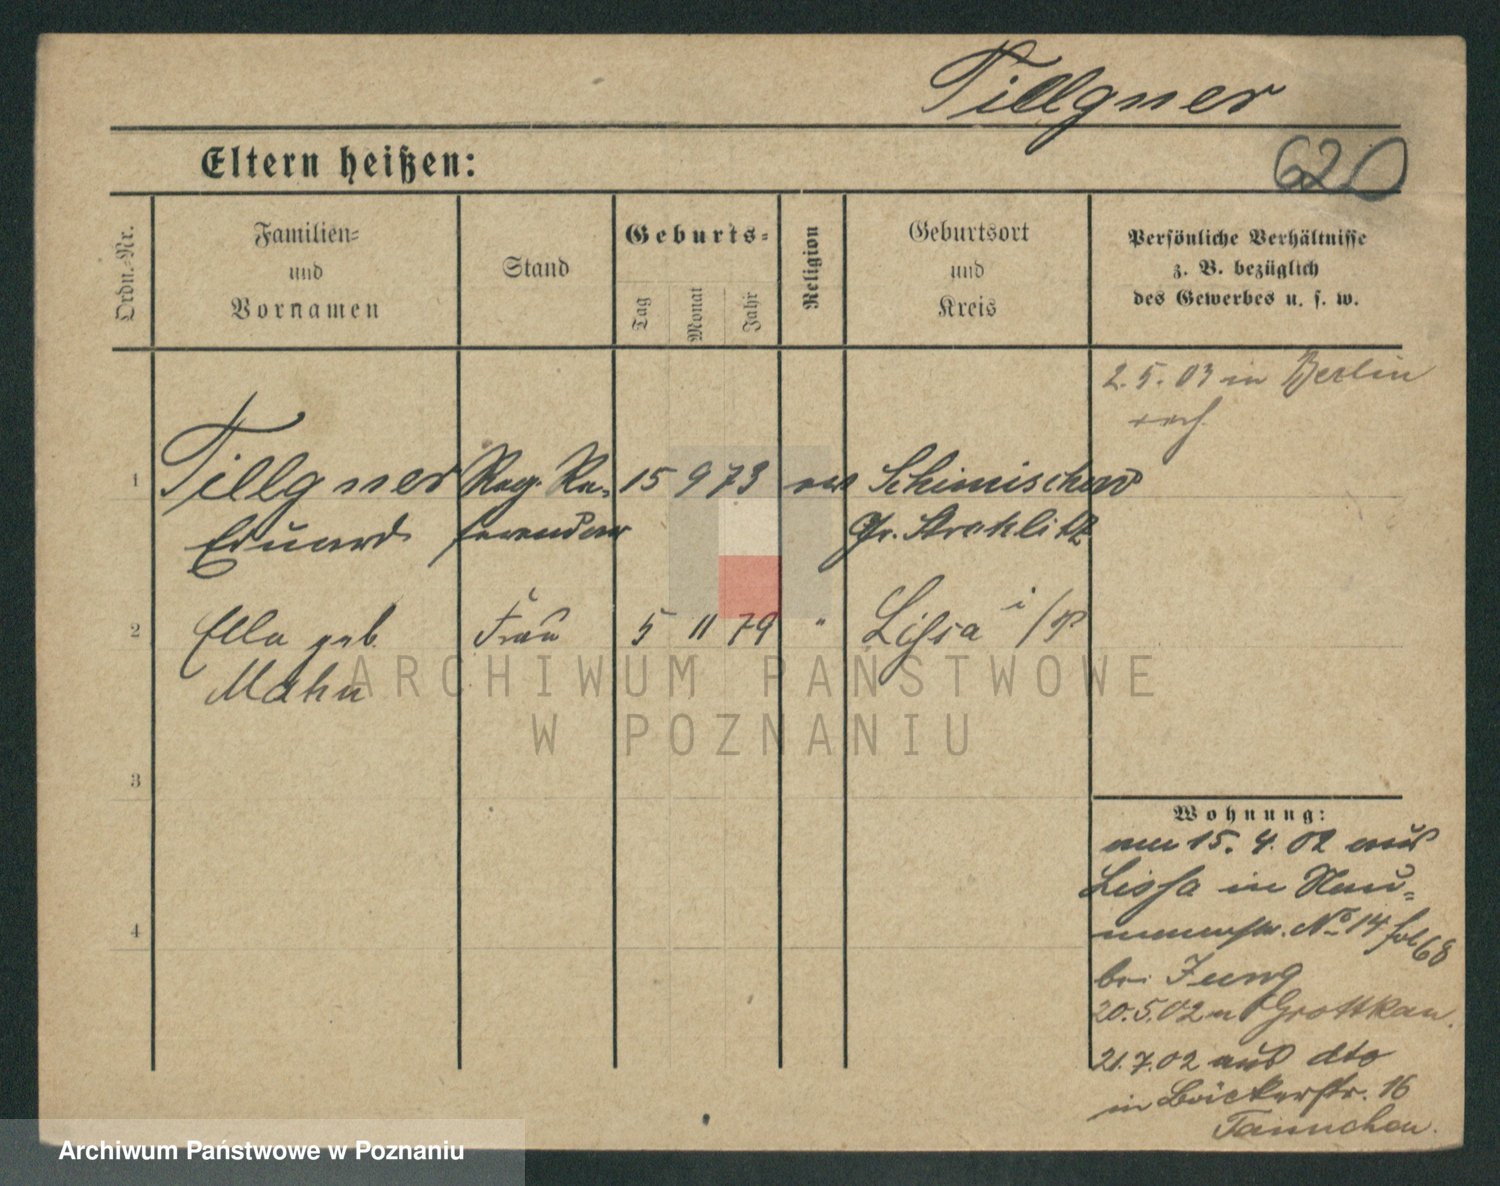 Tillgner
620
Eltern heißen:
Ordn.-Nr.
Familien-
und
Vornamen
Stand
Geburts-
Tag
Monat
Jahr
Religion
Geburtsort
und
Kreis
Persönliche Verhältnisse
z. B. bezüglich
des Gewerbes u. s. w.
2. 5. 03 in Berlin
1 Tillgner Reg. Re- 15 9 73 Schimischow
Eduard ferendar Gr. Strehlitz
2 Ella geb. Frau 5 11 79 " Lissa i/P
Mahn
3
4
Wohnung:
15. 4. 02 aus
Lissa in Nau-
mannstr. No 14 fol 68
bei Jung
20.5.02 n Grottkau.
21.7.02 aus dto
in Bäckerstr. 16
ARCHIWUM PAŃSTWOWE
W POZNANIU
Archiwum Państwowe w Poznaniu